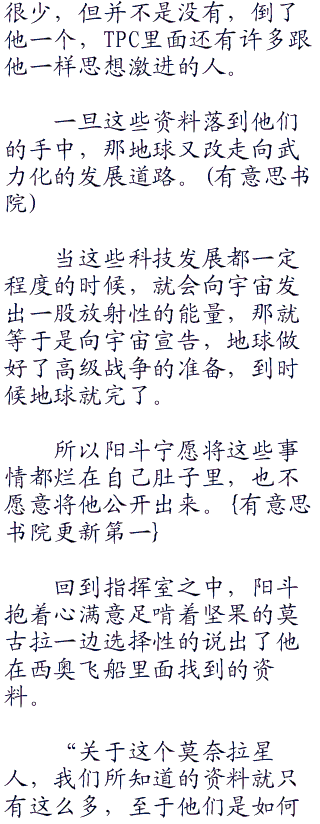 很少，但并不是没有，倒了
他一个，TPC里面还有许多跟
他一样思想激进的人。
一旦这些资料落到他们
的手中，那地球又改走向武
力化的发展道路。(有意思书
院)
当这些科技发展都一定
程度的时候，就会向宇宙发
出一股放射性的能量，那就
等于是向宇宙宣告，地球做
好了高级战争的准备，到时
候地球就完了。
所以阳斗宁愿将这些事
情都烂在自己肚子里，也不
愿意将他公开出来。{有意思
书院更新第一}
回到指挥室之中，阳斗
抱着心满意足啃着坚果的莫
古拉一边选择性的说出了他
在西奥飞船里面找到的资
料。
“关于这个莫奈拉星
人，我们所知道的资料就只
有这么多，至于他们是如何